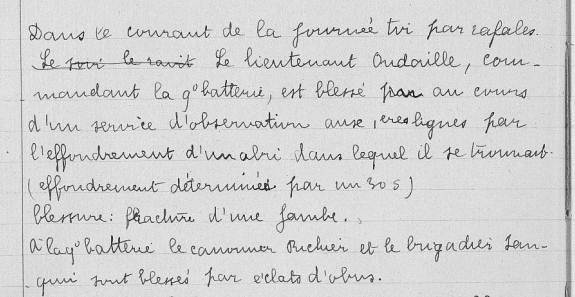 Dans le courant de la journée tir par rafales.
Le soir le ravit Le lieutenant Oudaille, com-
mandant la 9e batterie, est blessé au cours
d'un service d'observation aux 1eres lignes par
l'effondrement d'un abri dans lequel il se trouvait.
(effondrement déterminé par un 305)
blessure: fracture d'une jambe.
A la 9e batterie le canonnier Richier et le brigadier Jan-
quin sont blessés par éclats d'obus.